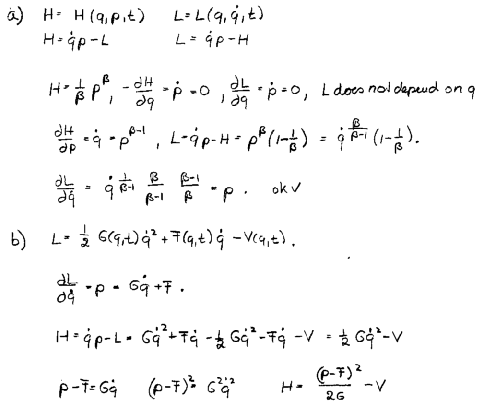 a) H = H(q,p,t)   L = L(q,q̇,t)
H = q̇p - L   L = q̇p - H
H = 1/β p^β, -∂H/∂q = ṗ = 0, ∂L/∂q = ṗ = 0, L does not depend on q
∂H/∂p = q̇ = p^(β-1), L = q̇p - H = p^β (1 - 1/β) = q̇^(β/(β-1)) (1 - 1/β).
∂L/∂q̇ = q̇^(1/(β-1)) β/(β-1) (β-1)/β = p. ok √
b) L = 1/2 G(q,t) q̇² + F(q,t) q̇ - V(q,t).
∂L/∂q̇ = p = Gq̇ + F.
H = q̇p - L = Gq̇² + Fq̇ - 1/2 Gq̇² - Fq̇ - V = 1/2 Gq̇² - V
p - F = Gq̇   (p-F)² = G²q̇²   H = (p-F)²/2G - V